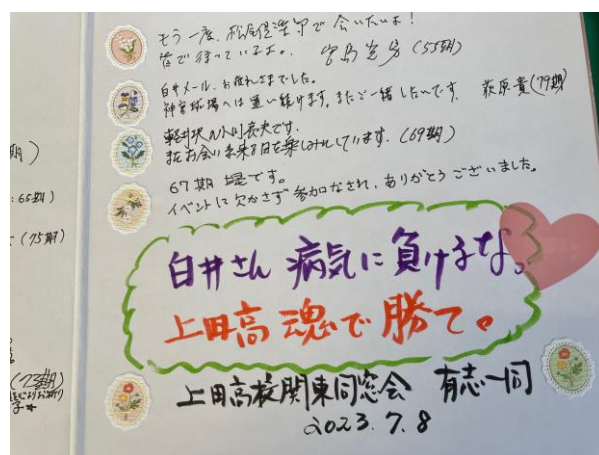 もう一度、松尾倶楽部で会いたいよ!
皆で待っているよ。 (55期)
白井メール、お疲れさまでした。
神宮球場へは通い続けます。またご一緒したいです。 萩原貴(79期)
軽井沢の小川亮夫です。
またお会い出来る日を楽しみにしています。(69期)
67期 堤です。
イベントに欠かさず参加なされ、ありがとうございました。
白井さん 病気に負けるな。
上田高魂で勝て。
上田高校関東同窓会 有志一同
2023.7.8
期)
:65期)
(75期)
(73期)